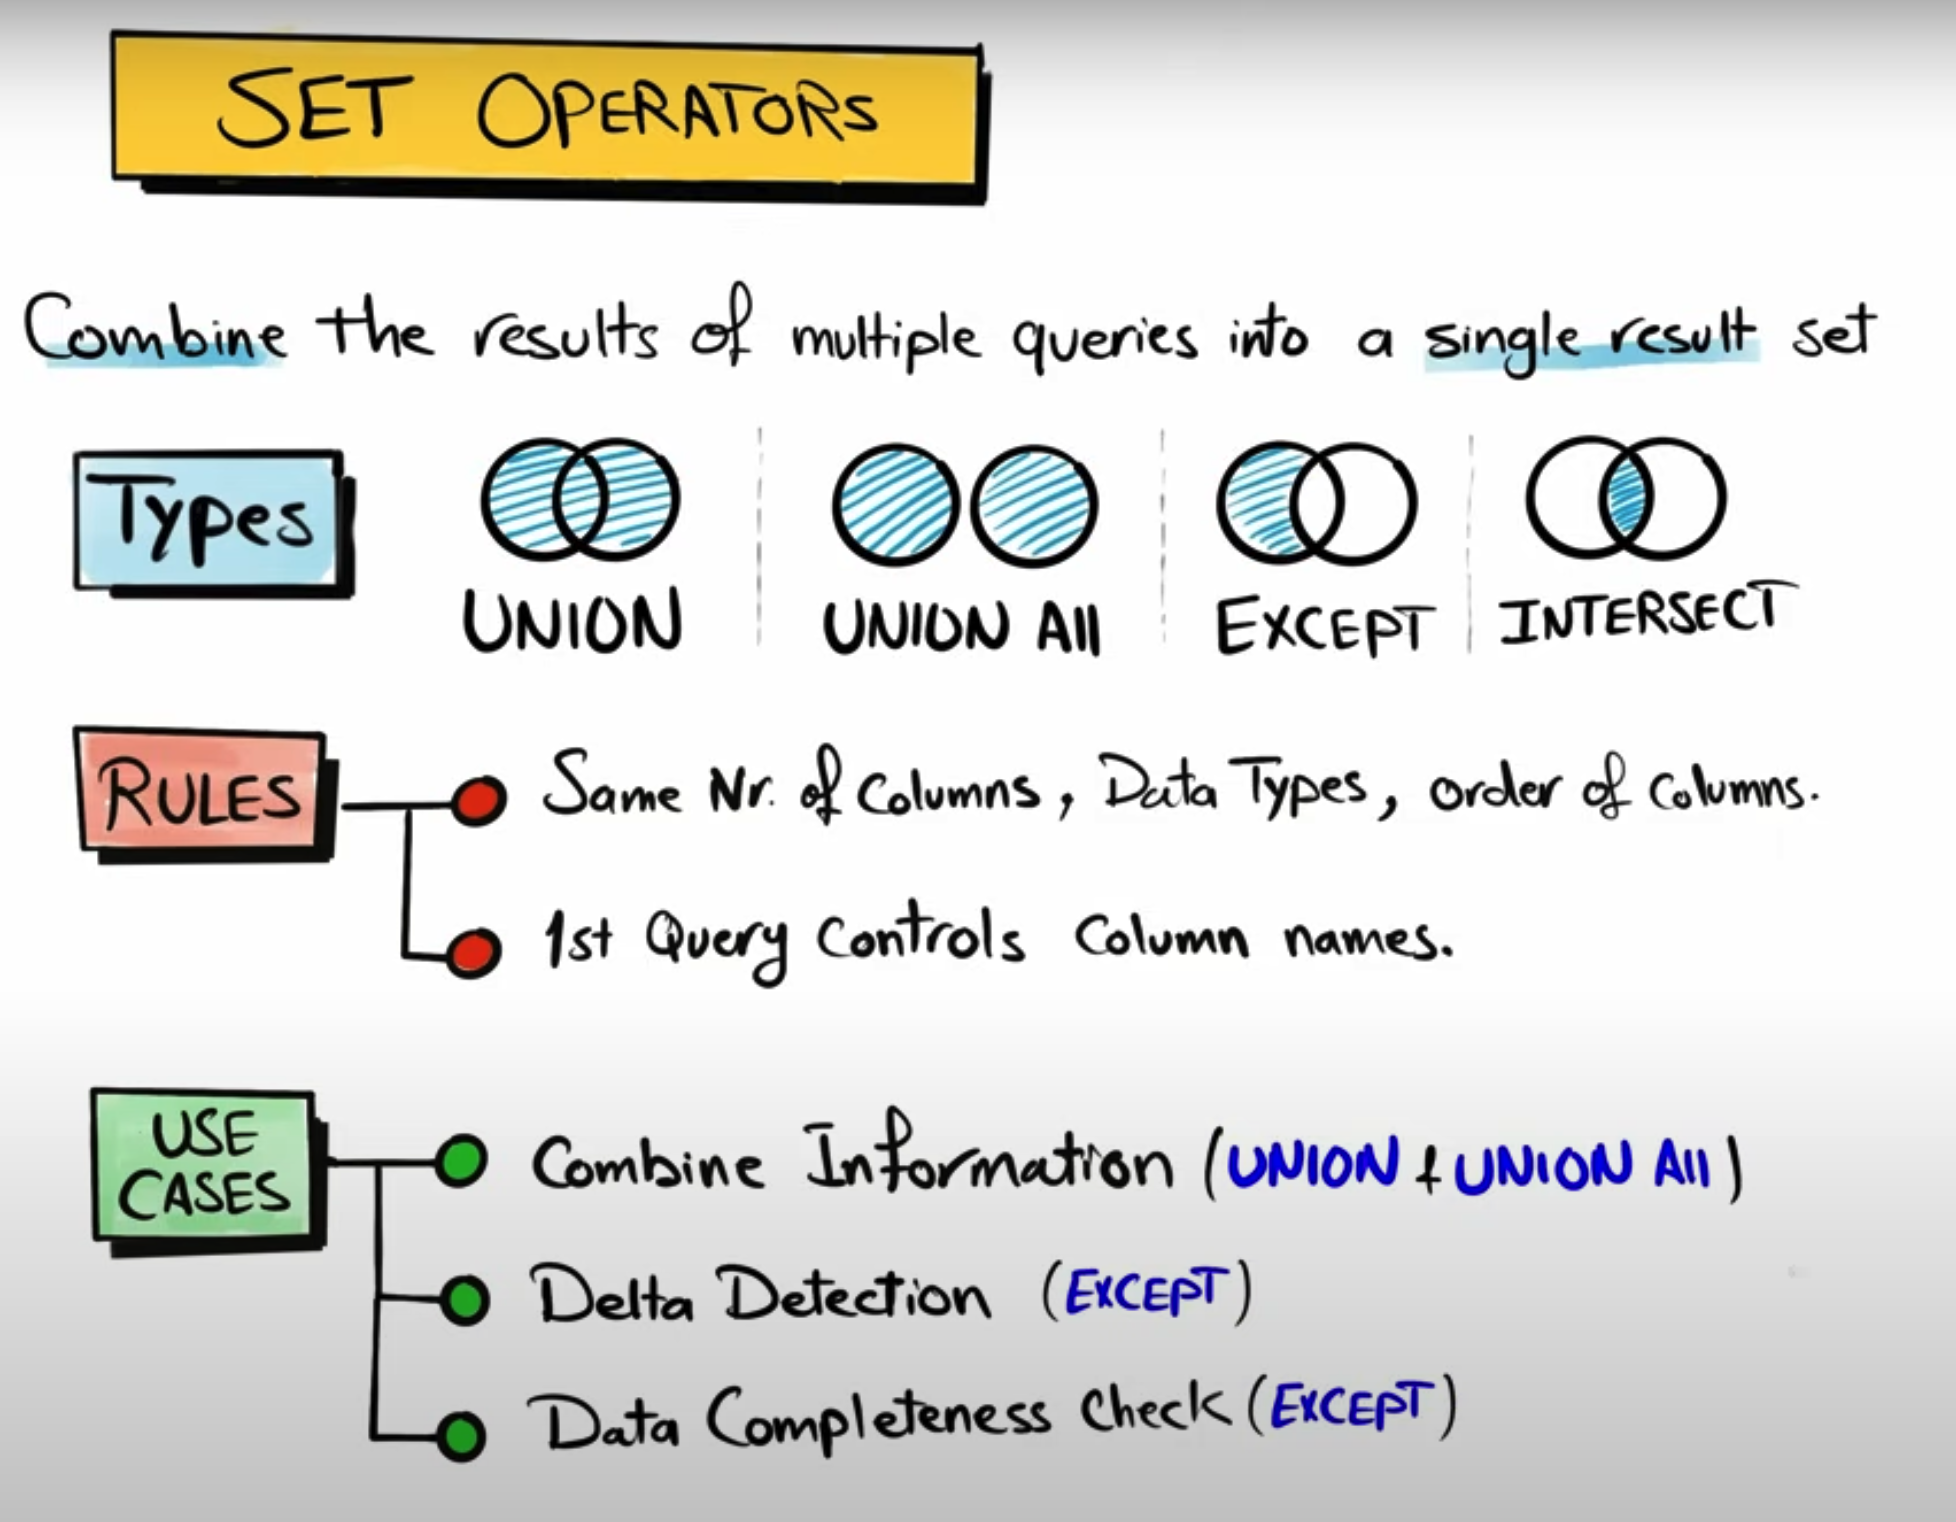 SET OPERATORS
Combine the results of multiple queries into a single result set
Types
UNION
UNION All
EXCEPT
INTERSECT
RULES
Same Nr. of Columns, Data Types, order of Columns.
1st Query Controls Column names.
USE
CASES
Combine Information (UNION + UNION All)
Delta Detection (EXCEPT)
Data Completeness Check (EXCEPT)